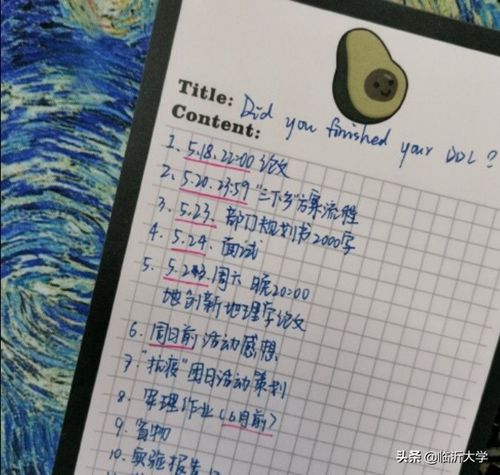 Title: Did you finished your DDL?
Content:
1. 5.18. 22:00 论文
2. 5.20. 23:59 "三下乡"方案流程
3. 5.23. 部门规划书2000字
4. 5.24. 面试
5. 5.23.周六 晚20:00
创新地理学论文
6. 周日前活动感想
7. "抗疫"团日活动策划
8. 审理作业(6月前)
9. 购物
10. 实验报告
头条 @临沂大学